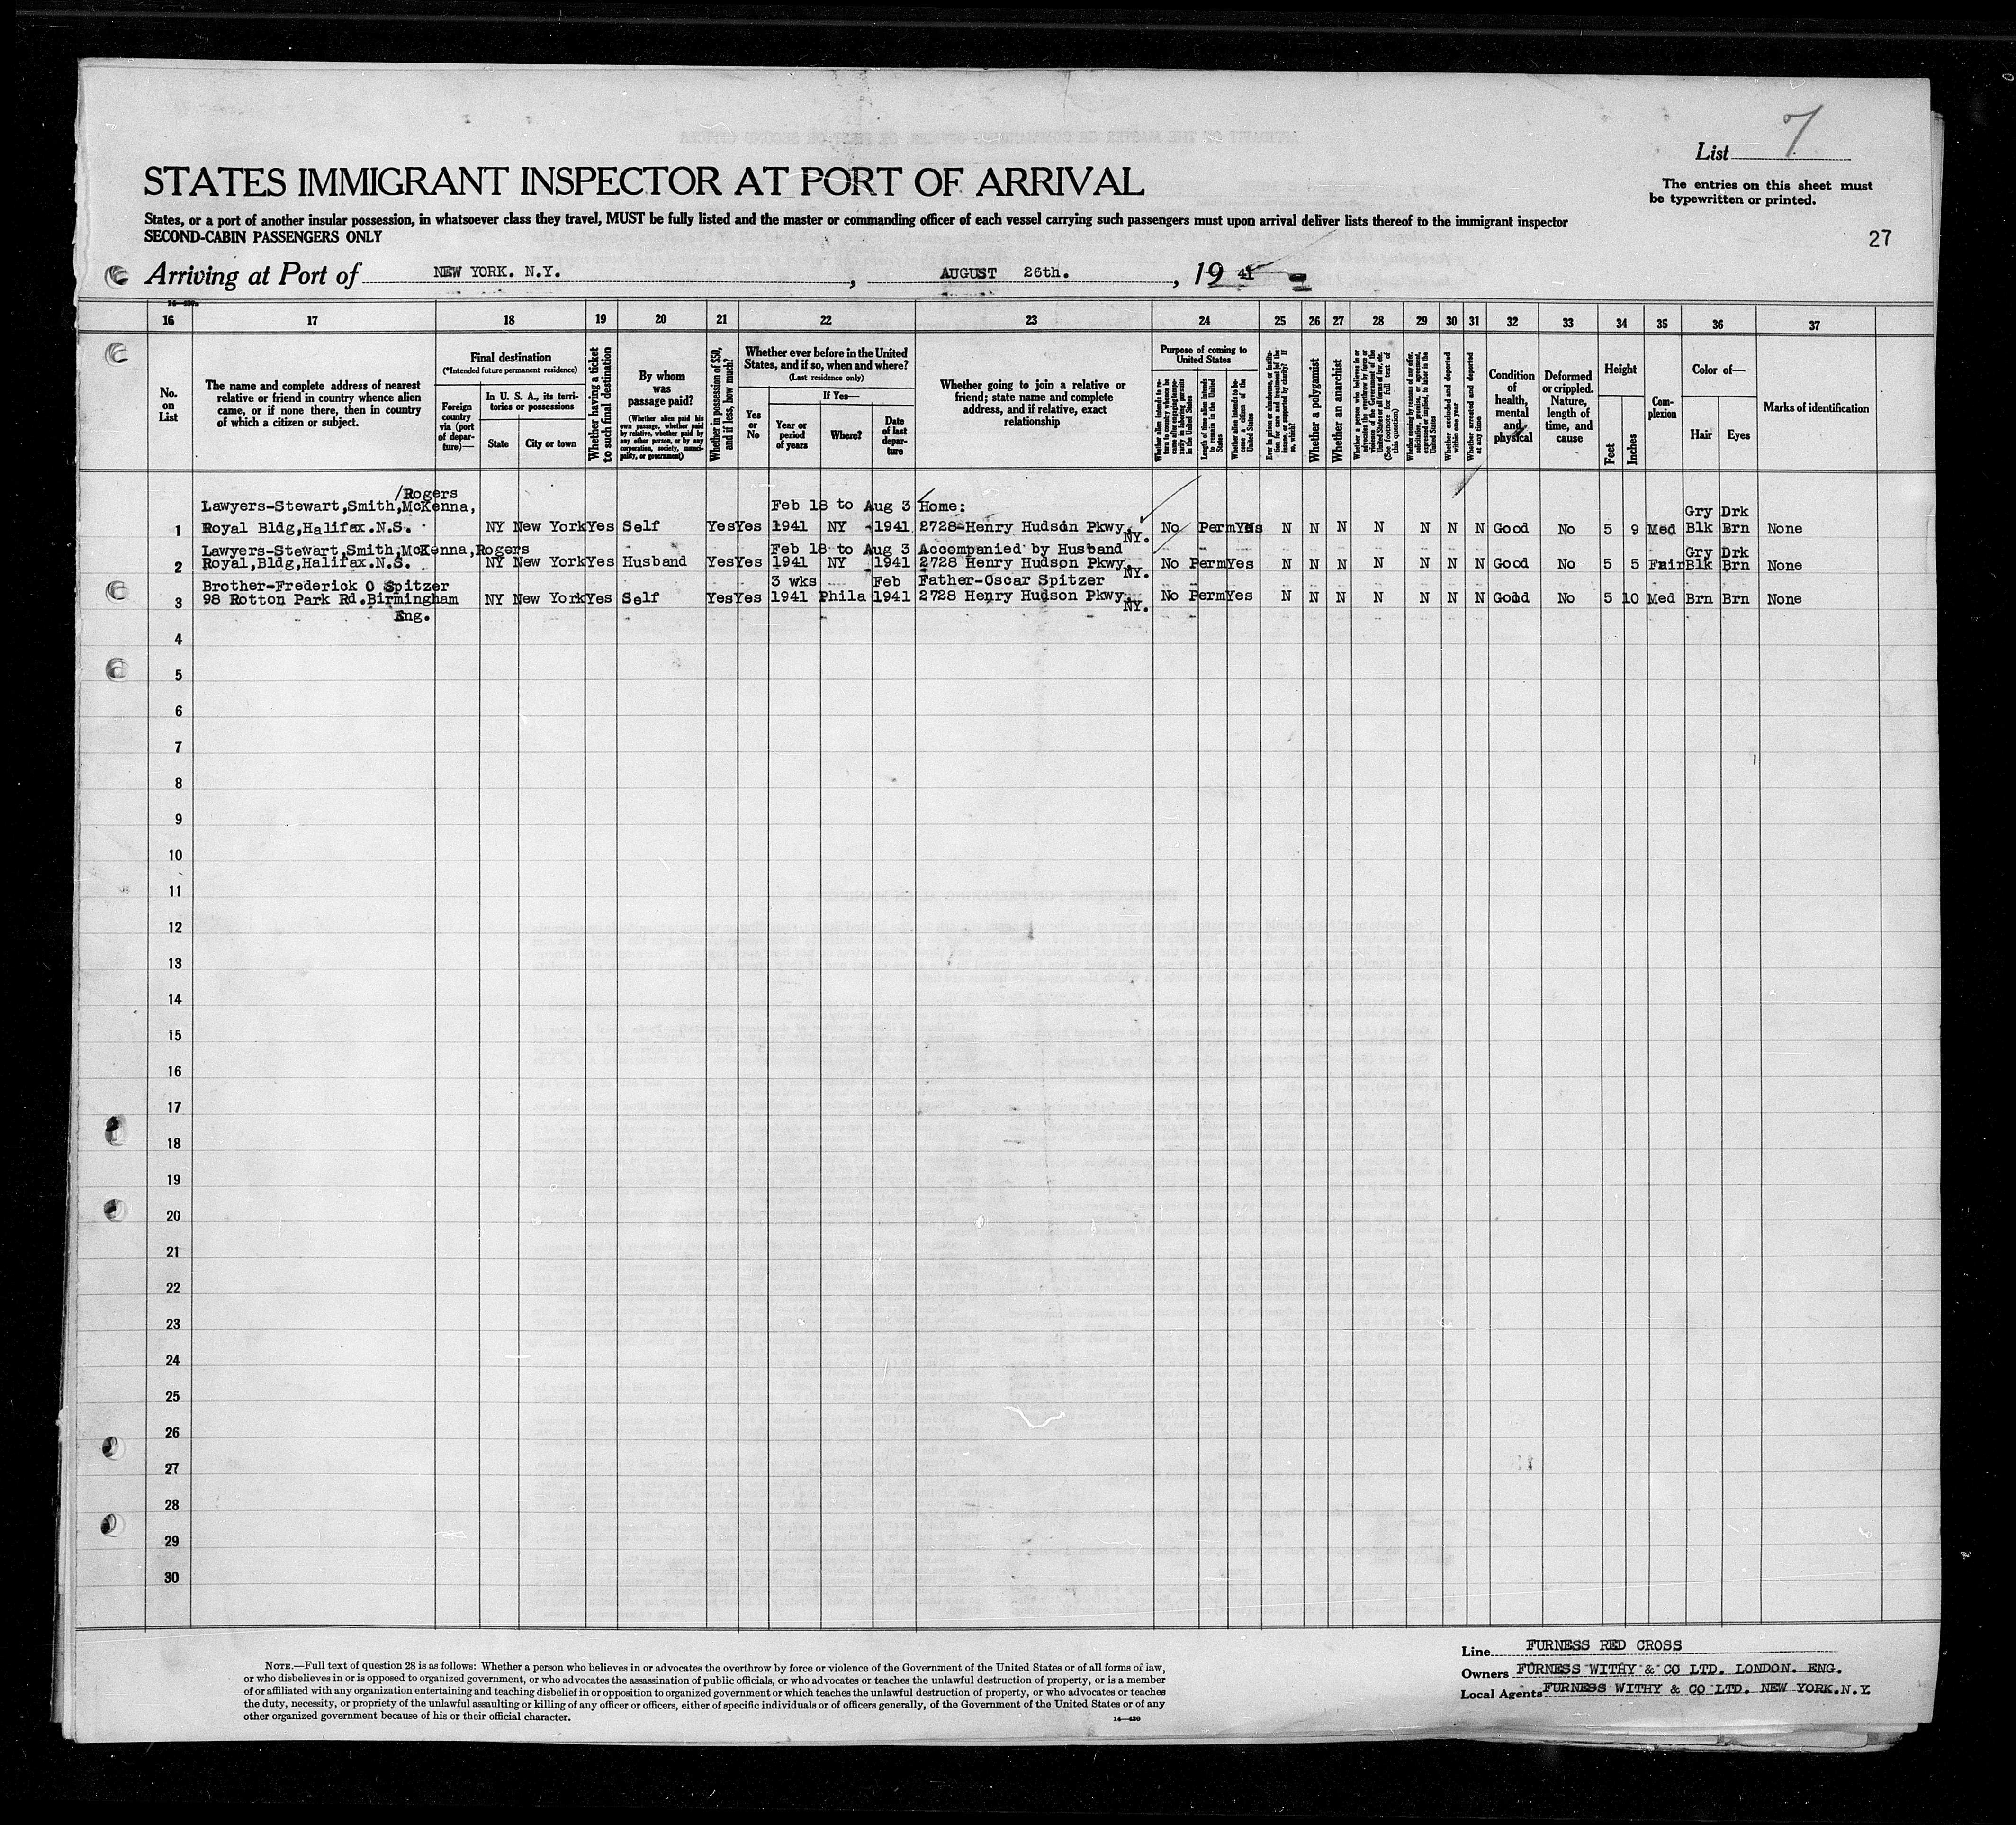 List 7
STATES IMMIGRANT INSPECTOR AT PORT OF ARRIVAL
The entries on this sheet must
be typewritten or printed.
States, or a port of another insular possession, in whatsoever class they travel, MUST be fully listed and the master or commanding officer of each vessel carrying such passengers must upon arrival deliver lists thereof to the immigrant inspector
SECOND-CABIN PASSENGERS ONLY
27
Arriving at Port of NEW YORK. N.Y. , AUGUST 26th. , 19 41
16 17 18 19 20 21 22 23 24 25 26 27 28 29 30 31 32 33 34 35 36 37
No. on List
The name and complete address of nearest relative or friend in country whence alien came, or if none there, then in country of which a citizen or subject.
Final destination
(*Intended future permanent residence)
Foreign country via (port of departure)—
In U. S. A., its territories or possessions
State City or town
Whether having a ticket to such final destination
By whom was passage paid?
(Whether alien paid his own passage, whether paid by relative, whether paid by any other person, or by any corporation, society, municipality, or government)
Whether in possession of $50, and if less, how much?
Whether ever before in the United States, and if so, when and where?
(Last residence only)
Yes or No
If Yes—
Year or period of years Where? Date of last departure
Whether going to join a relative or friend; state name and complete address, and if relative, exact relationship
Purpose of coming to United States
Length of time alien intends to remain in the United States
Whether alien intends to become a citizen of the United States
Whether a polygamist
Whether an anarchist
(See footnote for full text of this question)
Whether excluded and deported within one year
Whether arrested and deported at any time
Condition of health, mental and physical
Deformed or crippled. Nature, length of time, and cause
Height
Feet Inches
Complexion
Color of—
Hair Eyes
Marks of identification
/Rogers
Lawyers-Stewart,Smith,McKenna, Feb 18 to Aug 3 Home: Gry Drk
1 Royal Bldg,Halifax.N.S. NY New York Yes Self Yes Yes 1941 NY 1941 2728-Henry Hudson Pkwy. NY. No Perm Yes N N N N N N N Good No 5 9 Med Blk Brn None
Lawyers-Stewart,Smith,McKenna,Rogers Feb 18 to Aug 3 Accompanied by Husband Gry Drk
2 Royal,Bldg,Halifax.N.S. NY New York Yes Husband Yes Yes 1941 NY 1941 2728 Henry Hudson Pkwy. NY. No Perm Yes N N N N N N N Good No 5 5 Fair Blk Brn None
Brother-Frederick O Spitzer 3 wks Feb Father-Oscar Spitzer
3 98 Rotton Park Rd.Birmingham NY New York Yes Self Yes Yes 1941 Phila 1941 2728 Henry Hudson Pkwy. NY. No Perm Yes N N N N N N N Good No 5 10 Med Brn Brn None
Eng.
4
5
6
7
8
9
10
11
12
13
14
15
16
17
18
19
20
21
22
23
24
25
26
27
28
29
30
NOTE.—Full text of question 28 is as follows: Whether a person who believes in or advocates the overthrow by force or violence of the Government of the United States or of all forms of law,
or who disbelieves in or is opposed to organized government, or who advocates the assassination of public officials, or who advocates or teaches the unlawful destruction of property, or is a member
of or affiliated with any organization entertaining and teaching disbelief in or opposition to organized government or which teaches the unlawful destruction of property, or who advocates or teaches
the duty, necessity, or propriety of the unlawful assaulting or killing of any officer or officers, either of specific individuals or of officers generally, of the Government of the United States or of any
other organized government because of his or their official character.
14—430
Line FURNESS RED CROSS
Owners FURNESS WITHY & CO LTD. LONDON. ENG.
Local Agents FURNESS WITHY & CO LTD. NEW YORK.N.Y.